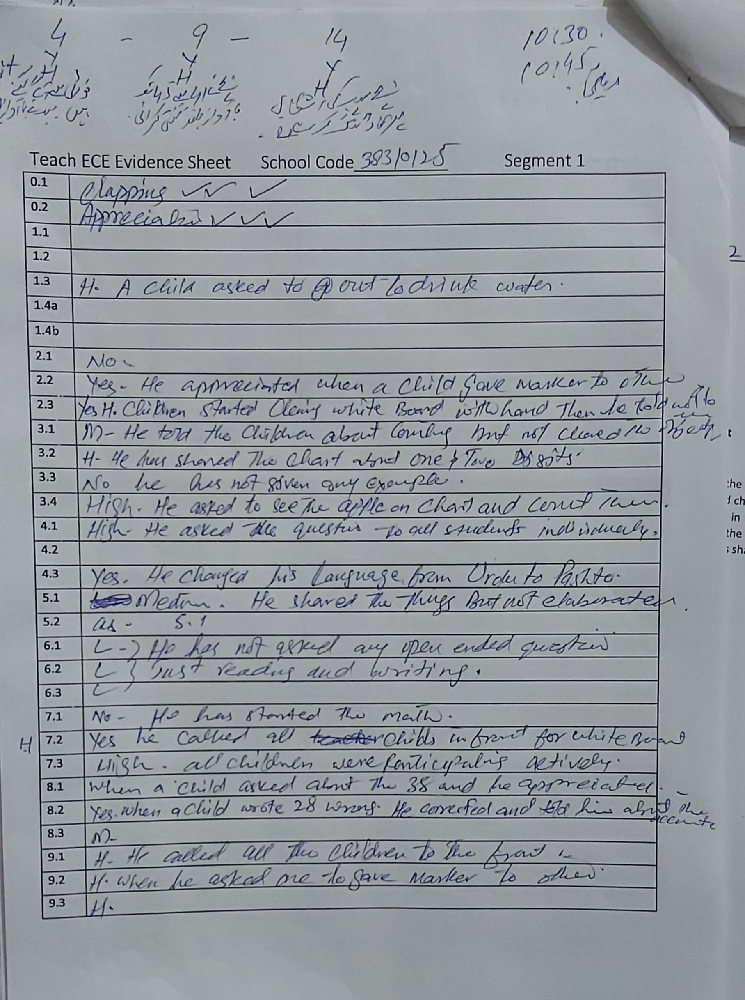 4 - 9 - 14
10:30
10:45
Y Y Y
H H H
Teach ECE Evidence Sheet School Code 383/0125 Segment 1
0.1 Clapping ✓✓ ✓
0.2 ✓ ✓ ✓
1.1
1.2
1.3 H. A child asked to go out to drink water.
1.4a
1.4b
2.1 No-
2.2 Yes- He appreciated when a child gave marker to other
2.3 Yes H. Children started white Board with hand Then he told not to
3.1 M- He told the children about But not
3.2 H- He has shared The chart about one & Two Digits
3.3 No he has not given any example.
3.4 High. He asked to see the apple on chart and count Them.
4.1 High- He asked the question to all students individually.
4.2
4.3 Yes. He changed his Language from Urdu to Pashto.
5.1 Medium. He shared the things But not
5.2 as - 5.1
6.1 L -} He has not asked any open ended question
6.2 L } Just reading and writing.
6.3 L
7.1 No- He has started the math.
H 7.2 Yes he called all childs in front for white Board
7.3 High. all children were participating actively.
8.1 When a child asked about the 38 and he appreciated.
8.2 Yes. when a child wrote 28 wrong. He corrected and told him about the accurate
8.3 M-
9.1 H- He called all the children to the front
9.2 H. when he asked one to gave marker to other.
9.3 H.
2
the
in
the